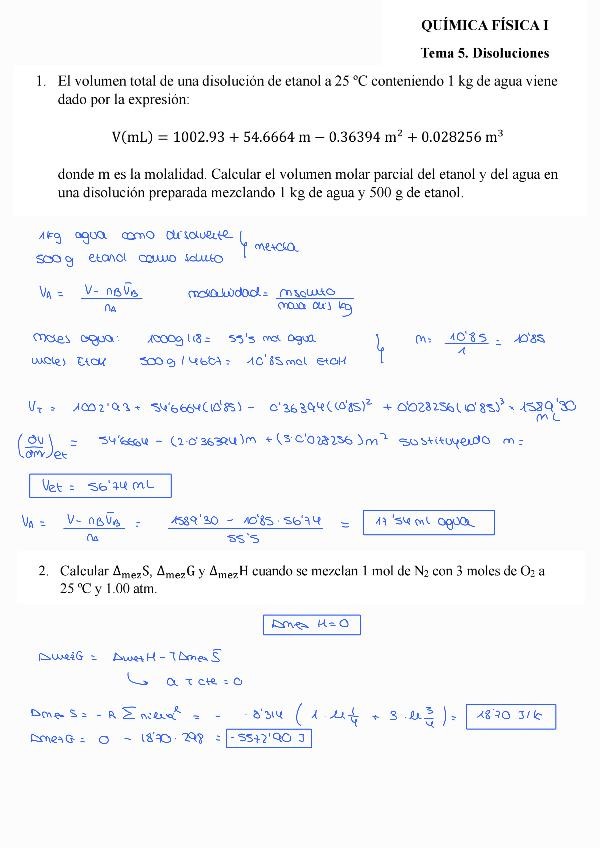 QUÍMICA FÍSICA I
Tema 5. Disoluciones
1. El volumen total de una disolución de etanol a 25 ºC conteniendo 1 kg de agua viene
dado por la expresión:
V(mL) = 1002.93 + 54.6664 m − 0.36394 m² + 0.028256 m³
donde m es la molalidad. Calcular el volumen molar parcial del etanol y del agua en
una disolución preparada mezclando 1 kg de agua y 500 g de etanol.
1kg agua como disolvente
500g etanol como soluto } mezcla
V_A = (V - n_B V̄_B) / n_A   molalidad = n soluto / masa dis kg
moles agua: 1000g/18 = 55'5 mol agua
moles EtOH 500g/46'07 = 10'85 mol EtOH } m = 10'85 / 1 = 10'85
V_T = 1002'93 + 54'6664(10'85) - 0'36394(10'85)² + 0'028256(10'85)³ = 1589'30 mL
(∂V/∂m)_et = 54'6664 - (2·0'36394)m + (3·0'028256)m² sustituyendo m =
Vet = 56'74 mL
V_A = (V - n_B V̄_B) / n_A = (1589'30 - 10'85 · 56'74) / 55'5 = 17'54 mL agua
2. Calcular ΔmezS, ΔmezG y ΔmezH cuando se mezclan 1 mol de N₂ con 3 moles de O₂ a
25 ºC y 1.00 atm.
Δmez H = 0
ΔmezG = ΔmezH - TΔmez S̄
↳ a T cte = 0
Δmez S = - R Σ = - 8'314 (1 · ln 1/4 + 3 · ln 3/4) = 18'70 J/K
ΔmezG = 0 - 18'70 · 298 = -5572'90 J